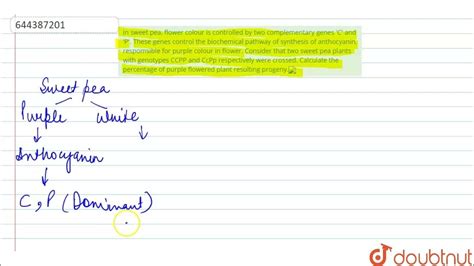 644387201
In sweet pea, flower colour is controlled by two complementary genes 'C' and
'P'. These genes control the biochemical pathway of synthesis of anthocyanin,
responsible for purple colour in flower. Consider that two sweet pea plants
with genotypes CCPP and CcPp respectively were crossed. Calculate the
percentage of purple flowered plant resulting progeny
Sweet pea
Purple white
Anthocyanin
C, P (Dominant)
doubtnut